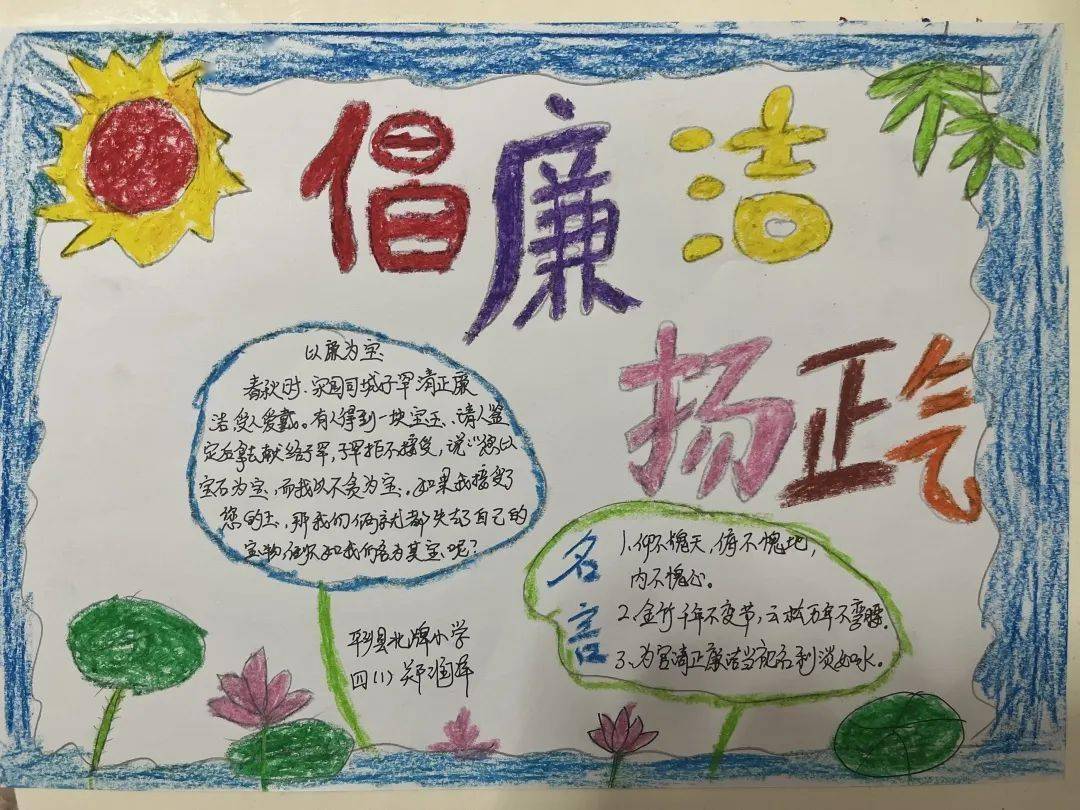 倡廉洁
扬正气
以廉为宝
春秋时、宋国司城子罕清正廉
洁,受人爱戴。有人得到一块宝玉、请人鉴
定后拿去献给子罕,子罕拒不接受,说:"您以
宝石为宝、而我以不贪为宝。如果我接受了
您的玉、那我们俩就都失去了自己的
宝物 如我们各有其宝呢?
名言
1、仰不愧天,俯不愧地,
内不愧心。
2、金竹千年不变节,云松万年不弯腰。
3、为官清正廉洁当记名利淡如水。
县北牌小学
四(1)郑润